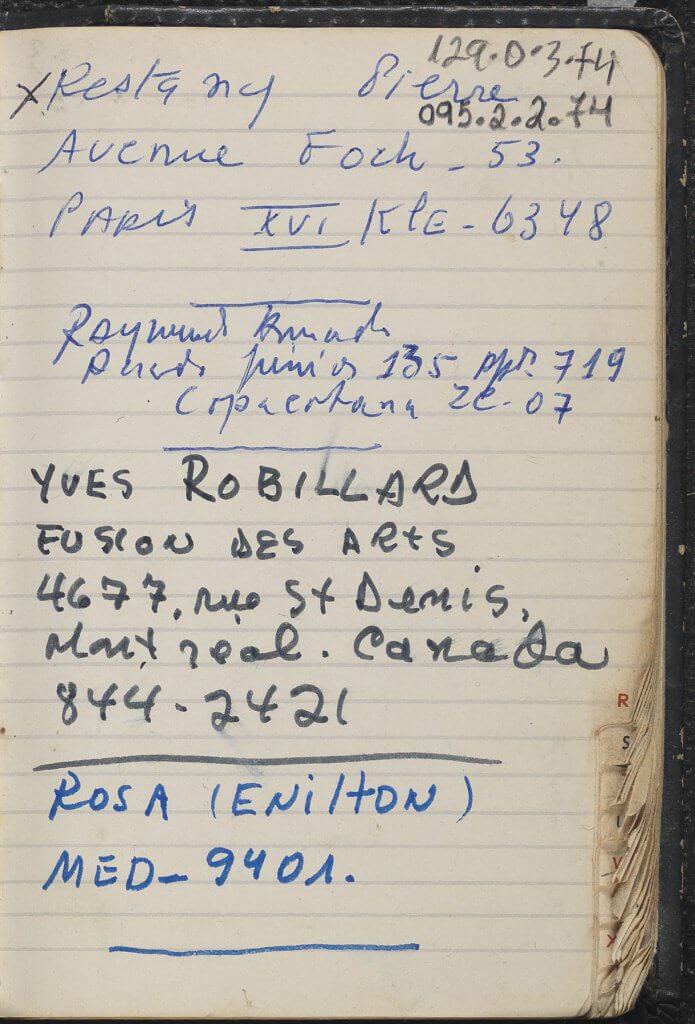 129.0.3.74
095.2.2.74
x Restany Pierre
Avenue Foch - 53.
PARIS XVI KlE - 6348
Raymundo
júnior 135 apt. 719
Copacabana ZC-07
YVES ROBILLARD
FUSION DES ARTS
4677, rue St Denis,
Montréal. Canada
844-2421
ROSA (ENILTON)
MED- 9401.
R
S
T
V
X